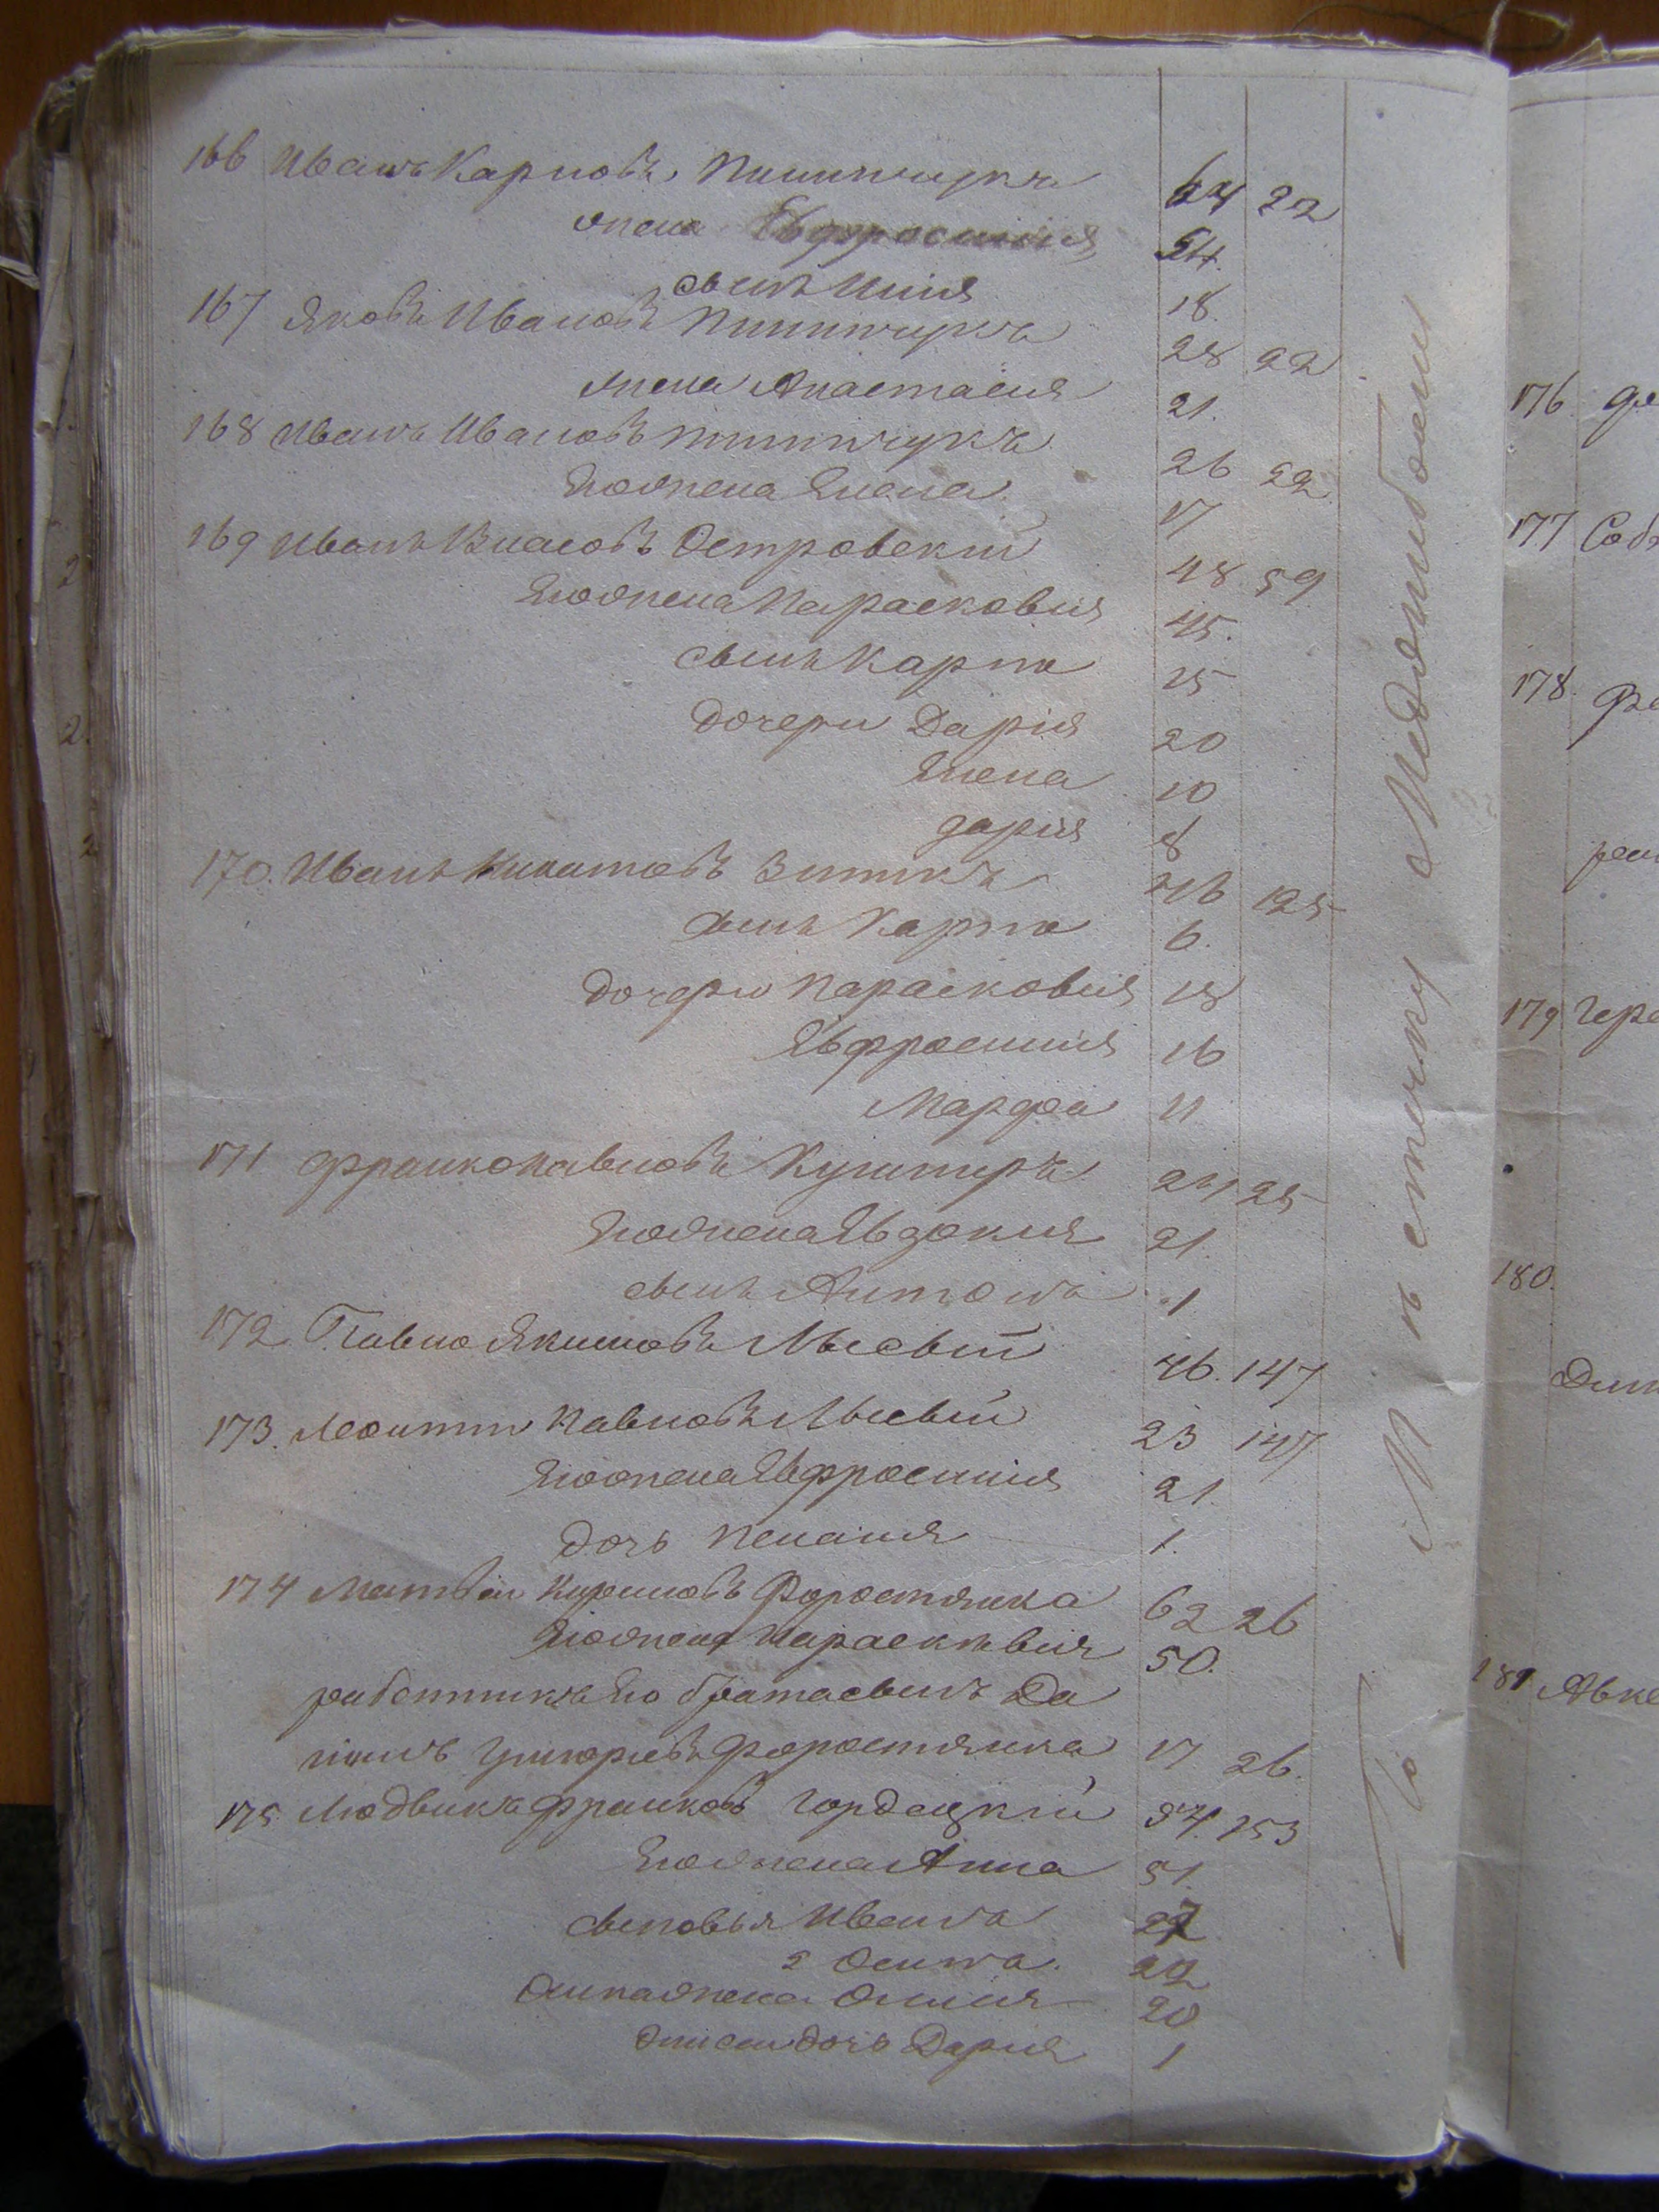 166 Иванъ Карповъ Пилипчукъ 64 22
жена Евфросинія 54.
сынъ Илія 18.
167 Яковъ Ивановъ Пилипчукъ 28 22
жена Анастасия 21.
168 Иванъ Ивановъ Пилипчукъ 26 22
Егожена Елена 17
169 Иванъ Власовъ Островскій 48 59
Егожена Парасковия 45.
сынъ Карпъ 15
дочери Дарія 20
Елена 10
дарія 8
170. Иванъ 46 125
сынъ Карпъ 6.
дочери Парасковия 18
Евфросинія 16
Марфа 11
171 Франко Павловъ Кушниръ 24 25
Егожена Евдокия 21.
сынъ Антонъ 1
172 Павло Якимовъ Лысый 46. 147
173. Леонтій Павловъ Лысый 23 147
Егожена Евфросинія 21.
дочь Пелагия 1.
174 Матвей Кириловъ Форостянка 62 26
Егожена Парасковия 50.
работникъ Его брата сынъ Да
ніилъ Григорьевъ Форостянка 17 26.
175. Людвикъ Франковъ Гордецкій 54. 153
Егожена Анна 51.
сыновья Иванъ 27
2 Осипъ. 22
жена 20
дочь Дария 1
По М къ стечку Меджибожу
176
177
178.
179
180.
181